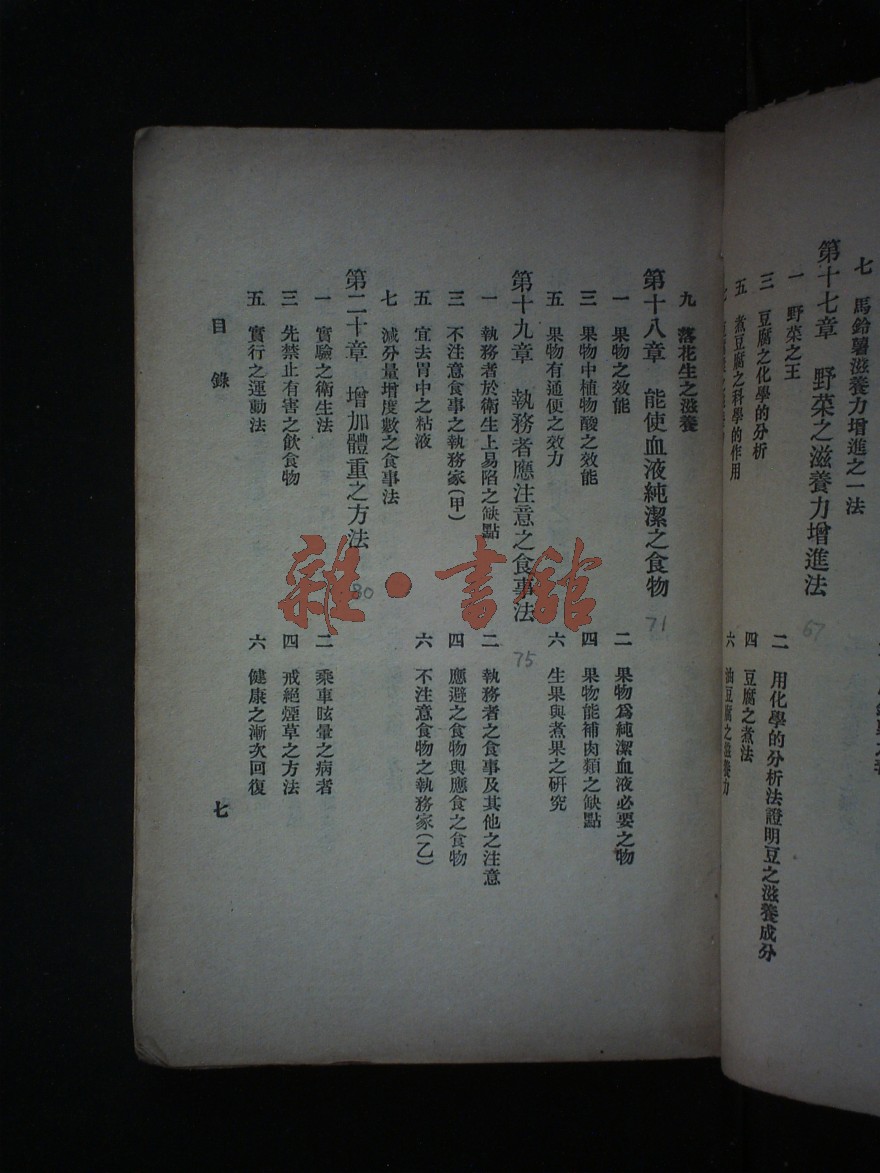 七 馬鈴薯滋養力增進之一法
第十七章 野菜之滋養力增進法
67
一 野菜之王
二 用化學的分析法證明豆之滋養成分
三 豆腐之化學的分析
四 豆腐之煮法
五 煮豆腐之科學的作用
六 油豆腐之滋養力
九 落花生之滋養
第十八章 能使血液純潔之食物
71
一 果物之效能
二 果物爲純潔血液必要之物
三 果物中植物酸之效能
四 果物能補肉類之缺點
五 果物有通便之效力
六 生果與煮果之研究
第十九章 執務者應注意之食事法
75
一 執務者於衛生上易陷之缺點
二 執務者之食事及其他之注意
三 不注意食事之執務家(甲)
四 應避之食物與應食之食物
五 宜去胃中之粘液
六 不注意食物之執務家(乙)
七 減分量增度數之食事法
第二十章 增加體重之方法
80
一 實驗之衛生法
二 乘車眩暈之病者
三 先禁止有害之飲食物
四 戒絕煙草之方法
五 實行之運動法
六 健康之漸次回復
目錄
七
雜·書館